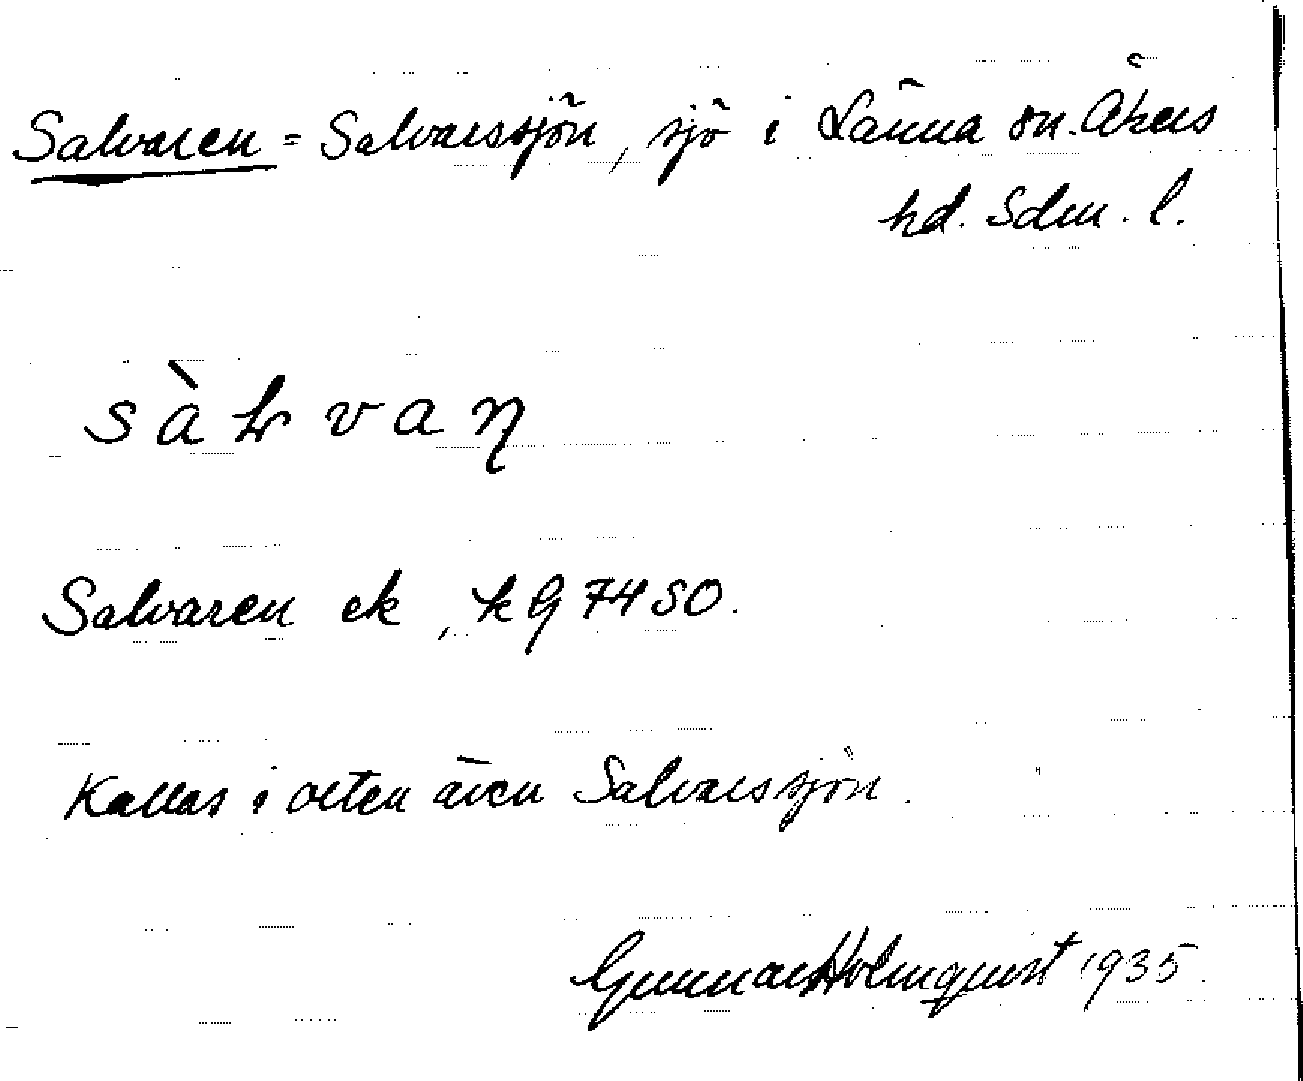 Salvaren = Salvarssjön, sjö i Länna sn. Åkers
hd. Sdm. l.
Salvaren ek, kG 7450.
Kallas i orten även Salvarssjön.
Gunnar Holmquist 1935.